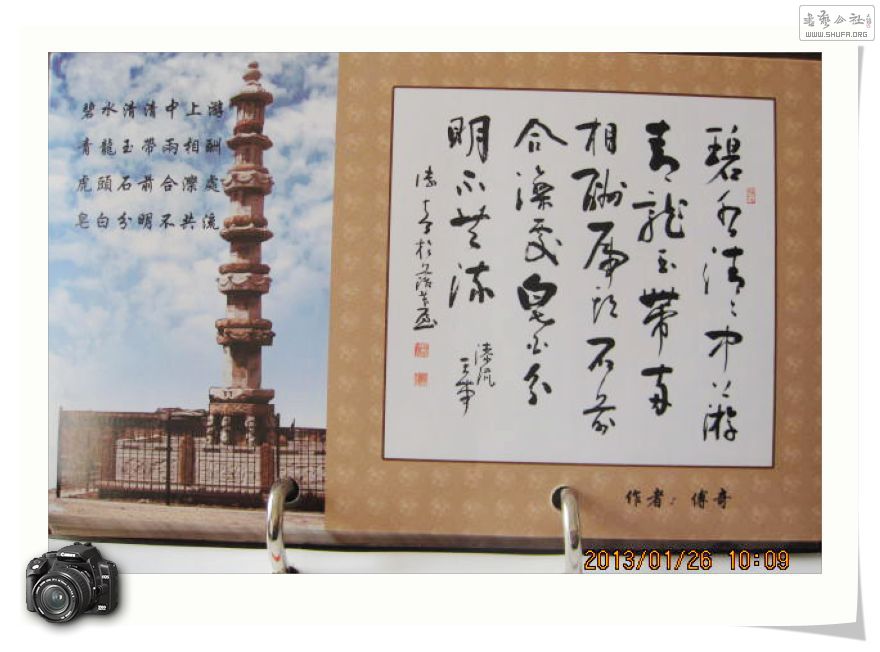 WWW.SHUFA.ORG
碧水清清中上游
青龍玉帶兩相酬
虎頭石前合濼處
皂白分明不共流
碧水清〻中上游
青龍玉帶兩
相酬虎頭石前
合濼處皂白分
明不共流
作者：傅奇
2013/01/26 10:09
Canon